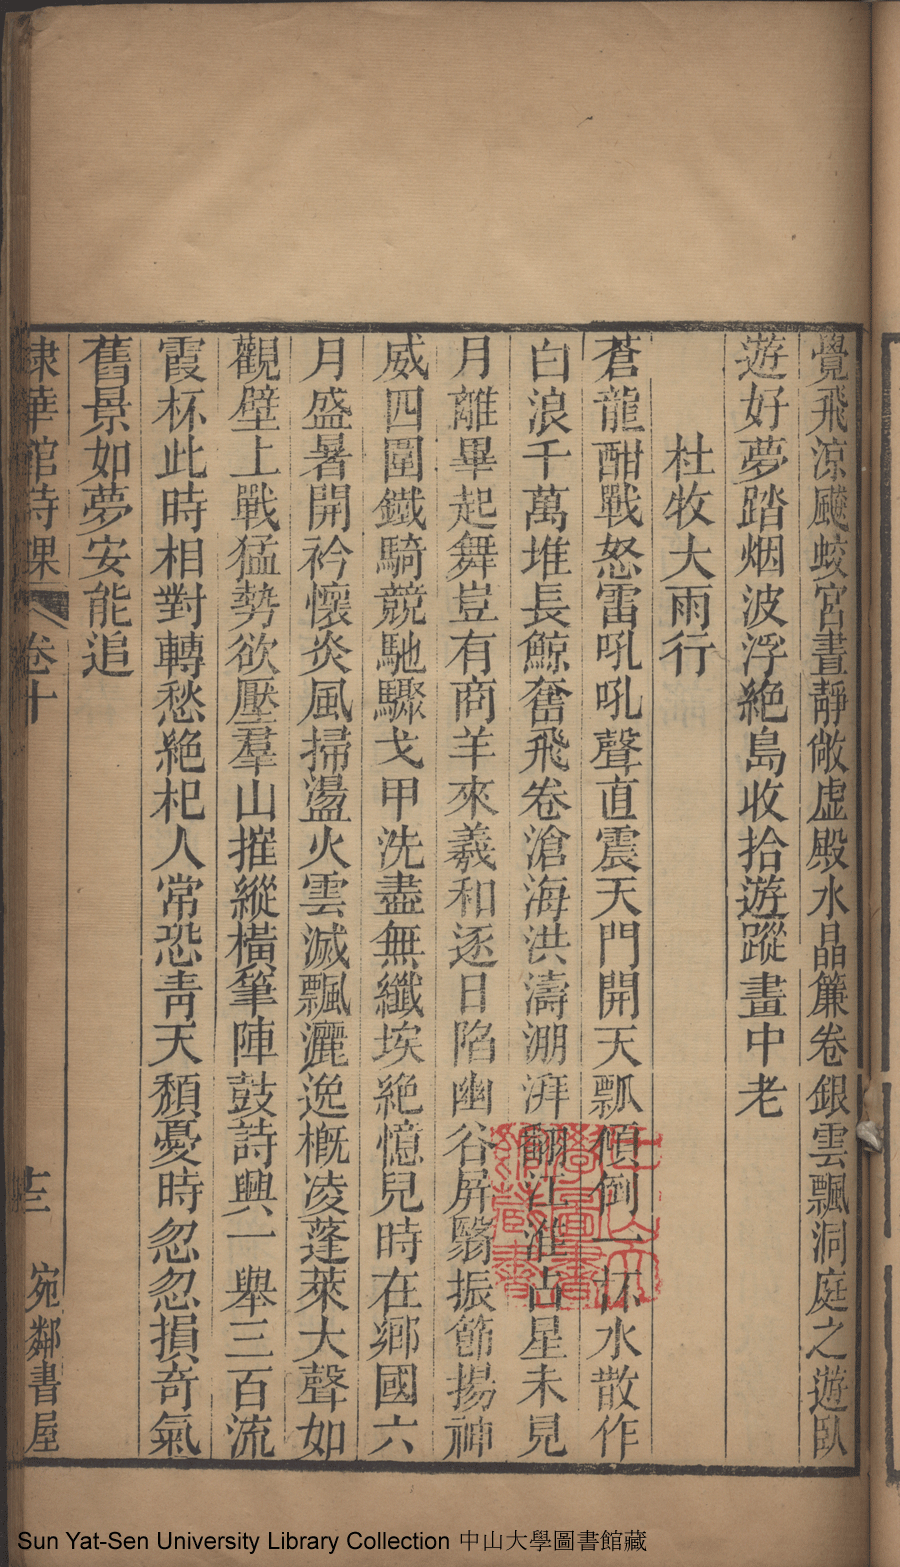 覺飛涼颷蛟宮晝靜敞虛殿水晶簾卷銀雲飄洞庭之遊臥
遊好夢踏烟波浮絶島收拾遊蹤畫中老
杜牧大雨行
蒼龍酣戰怒雷吼吼聲直震天門開天瓢傾倒一杯水散作
白浪千萬堆長鯨奮飛卷滄海洪濤溯湃翻江淮占星未見
月離畢起舞豈有商羊來羲和逐日陷幽谷屏翳振節揚神
威四圍鐵騎競馳驟戈甲洗盡無纖埃絶憶兒時在鄉國六
月盛暑開衿懷炎風掃盪火雲滅飄灑逸槪凌蓬萊大聲如
觀壁上戰猛勢欲壓羣山摧縱橫筆陣鼓詩興一舉三百流
霞杯此時相對轉愁絶杞人常恐靑天頹憂時忽忽損奇氣
舊景如夢安能追
棣華館詩課 卷十 十三 宛鄰書屋
Sun Yat-Sen University Library Collection 中山大學圖書館藏